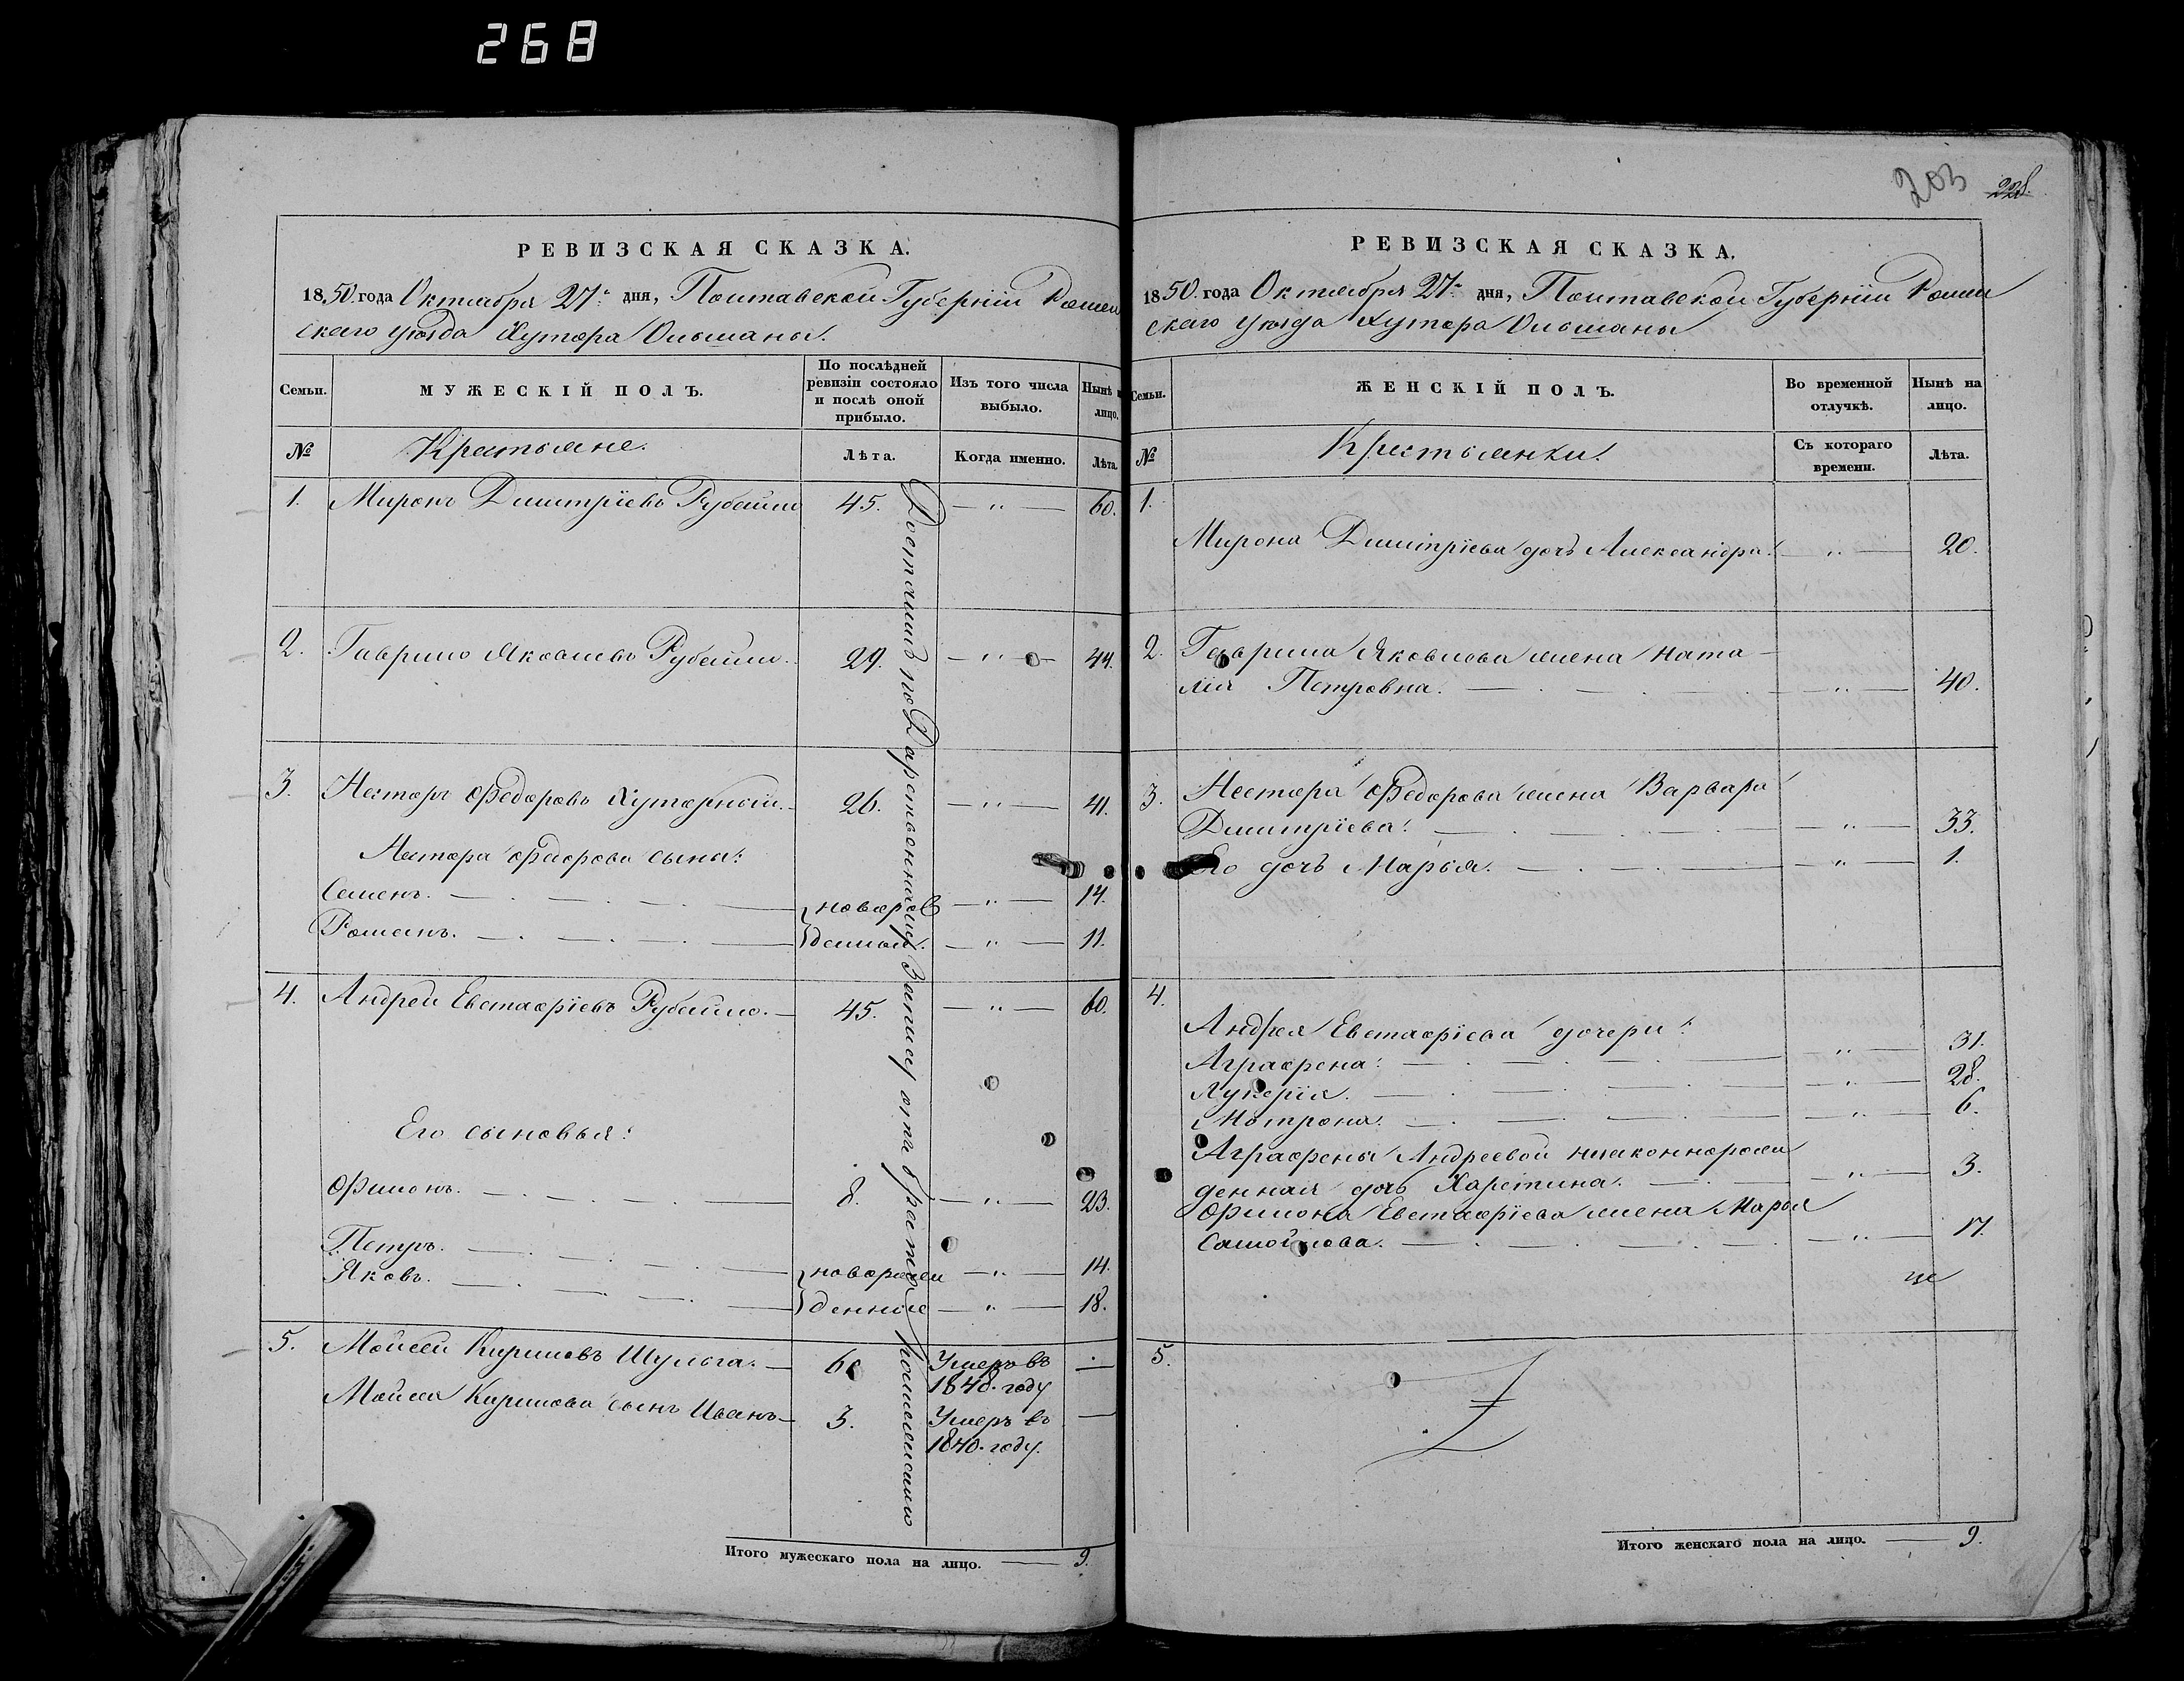 268
РЕВИЗСКАЯ СКАЗКА.
1850. года Октября 27го дня, Полтавской Губерніи Ромен
скаго уѣзда Хутора Ольшаны.
Семьи.
МУЖЕСКІЙ ПОЛЪ.
По послѣдней
ревизіи состояло
и послѣ оной
прибыло.
Изъ того числа
выбыло.
Нынѣ н
лицо.
№
Крестьяне.
Лѣта.
Когда именно.
Лѣта.
1. Миронъ Дмитріевъ Рубайло 45. — " — 60.
2. Гаврило Яковлевъ Рубайло. 29. — " — 44.
3. Несторъ Федоровъ Хуторный. 26. — " — 41.
Нестора Федорова сыны:
Семенъ. новорож — " — 14.
Романъ. денные. — " — 11.
4. Андрей Евстафіевъ Рубайло. — 45. — " — 60.
Его сыновья:
Филонъ. 8. — " — 23.
Петръ. новорож — " — 14.
Яковъ. денные — " — 18.
5. Мойсей Кириловъ Шульга. — 60 Умеръ въ —
1848. году
Мойсея Кирилова сынъ Иванъ — 3. Умеръ въ —
1840. году.
Достались по Дарственной Записи отъ брата
Итого мужескаго пола на лицо. — 9.
203 228.
РЕВИЗСКАЯ СКАЗКА.
1850. года Октября 27го дня, Полтавской Губерніи Ромен
скаго уѣзда Хутора Ольшаны
Семьи.
ЖЕНСКІЙ ПОЛЪ.
Во временной
отлучкѣ.
Нынѣ на
лицо.
№
Крестьянки.
Съ котораго
времени.
Лѣта.
1.
Мирона Дмитріева дочь Александра. — " — 20.
2. Гаврила Яковлева жена Ната-
лія Петровна. — " — 40.
3. Нестора Федорова жена Варвара
Дмитріева. — " — 33.
Его дочь Марья. — " — 1.
4.
Андрея Евстафіева дочери:
Аграфена. — " — 31.
Лукерія. — " — 28.
Мотрона. — " — 6.
Аграфены Андреевой незаконнорож
денная дочь Харетина. — " — 3.
Филона Евстафіева жена Марья
Самойлова. — " — 17.
5.
Итого женскаго пола на лицо. — 9.